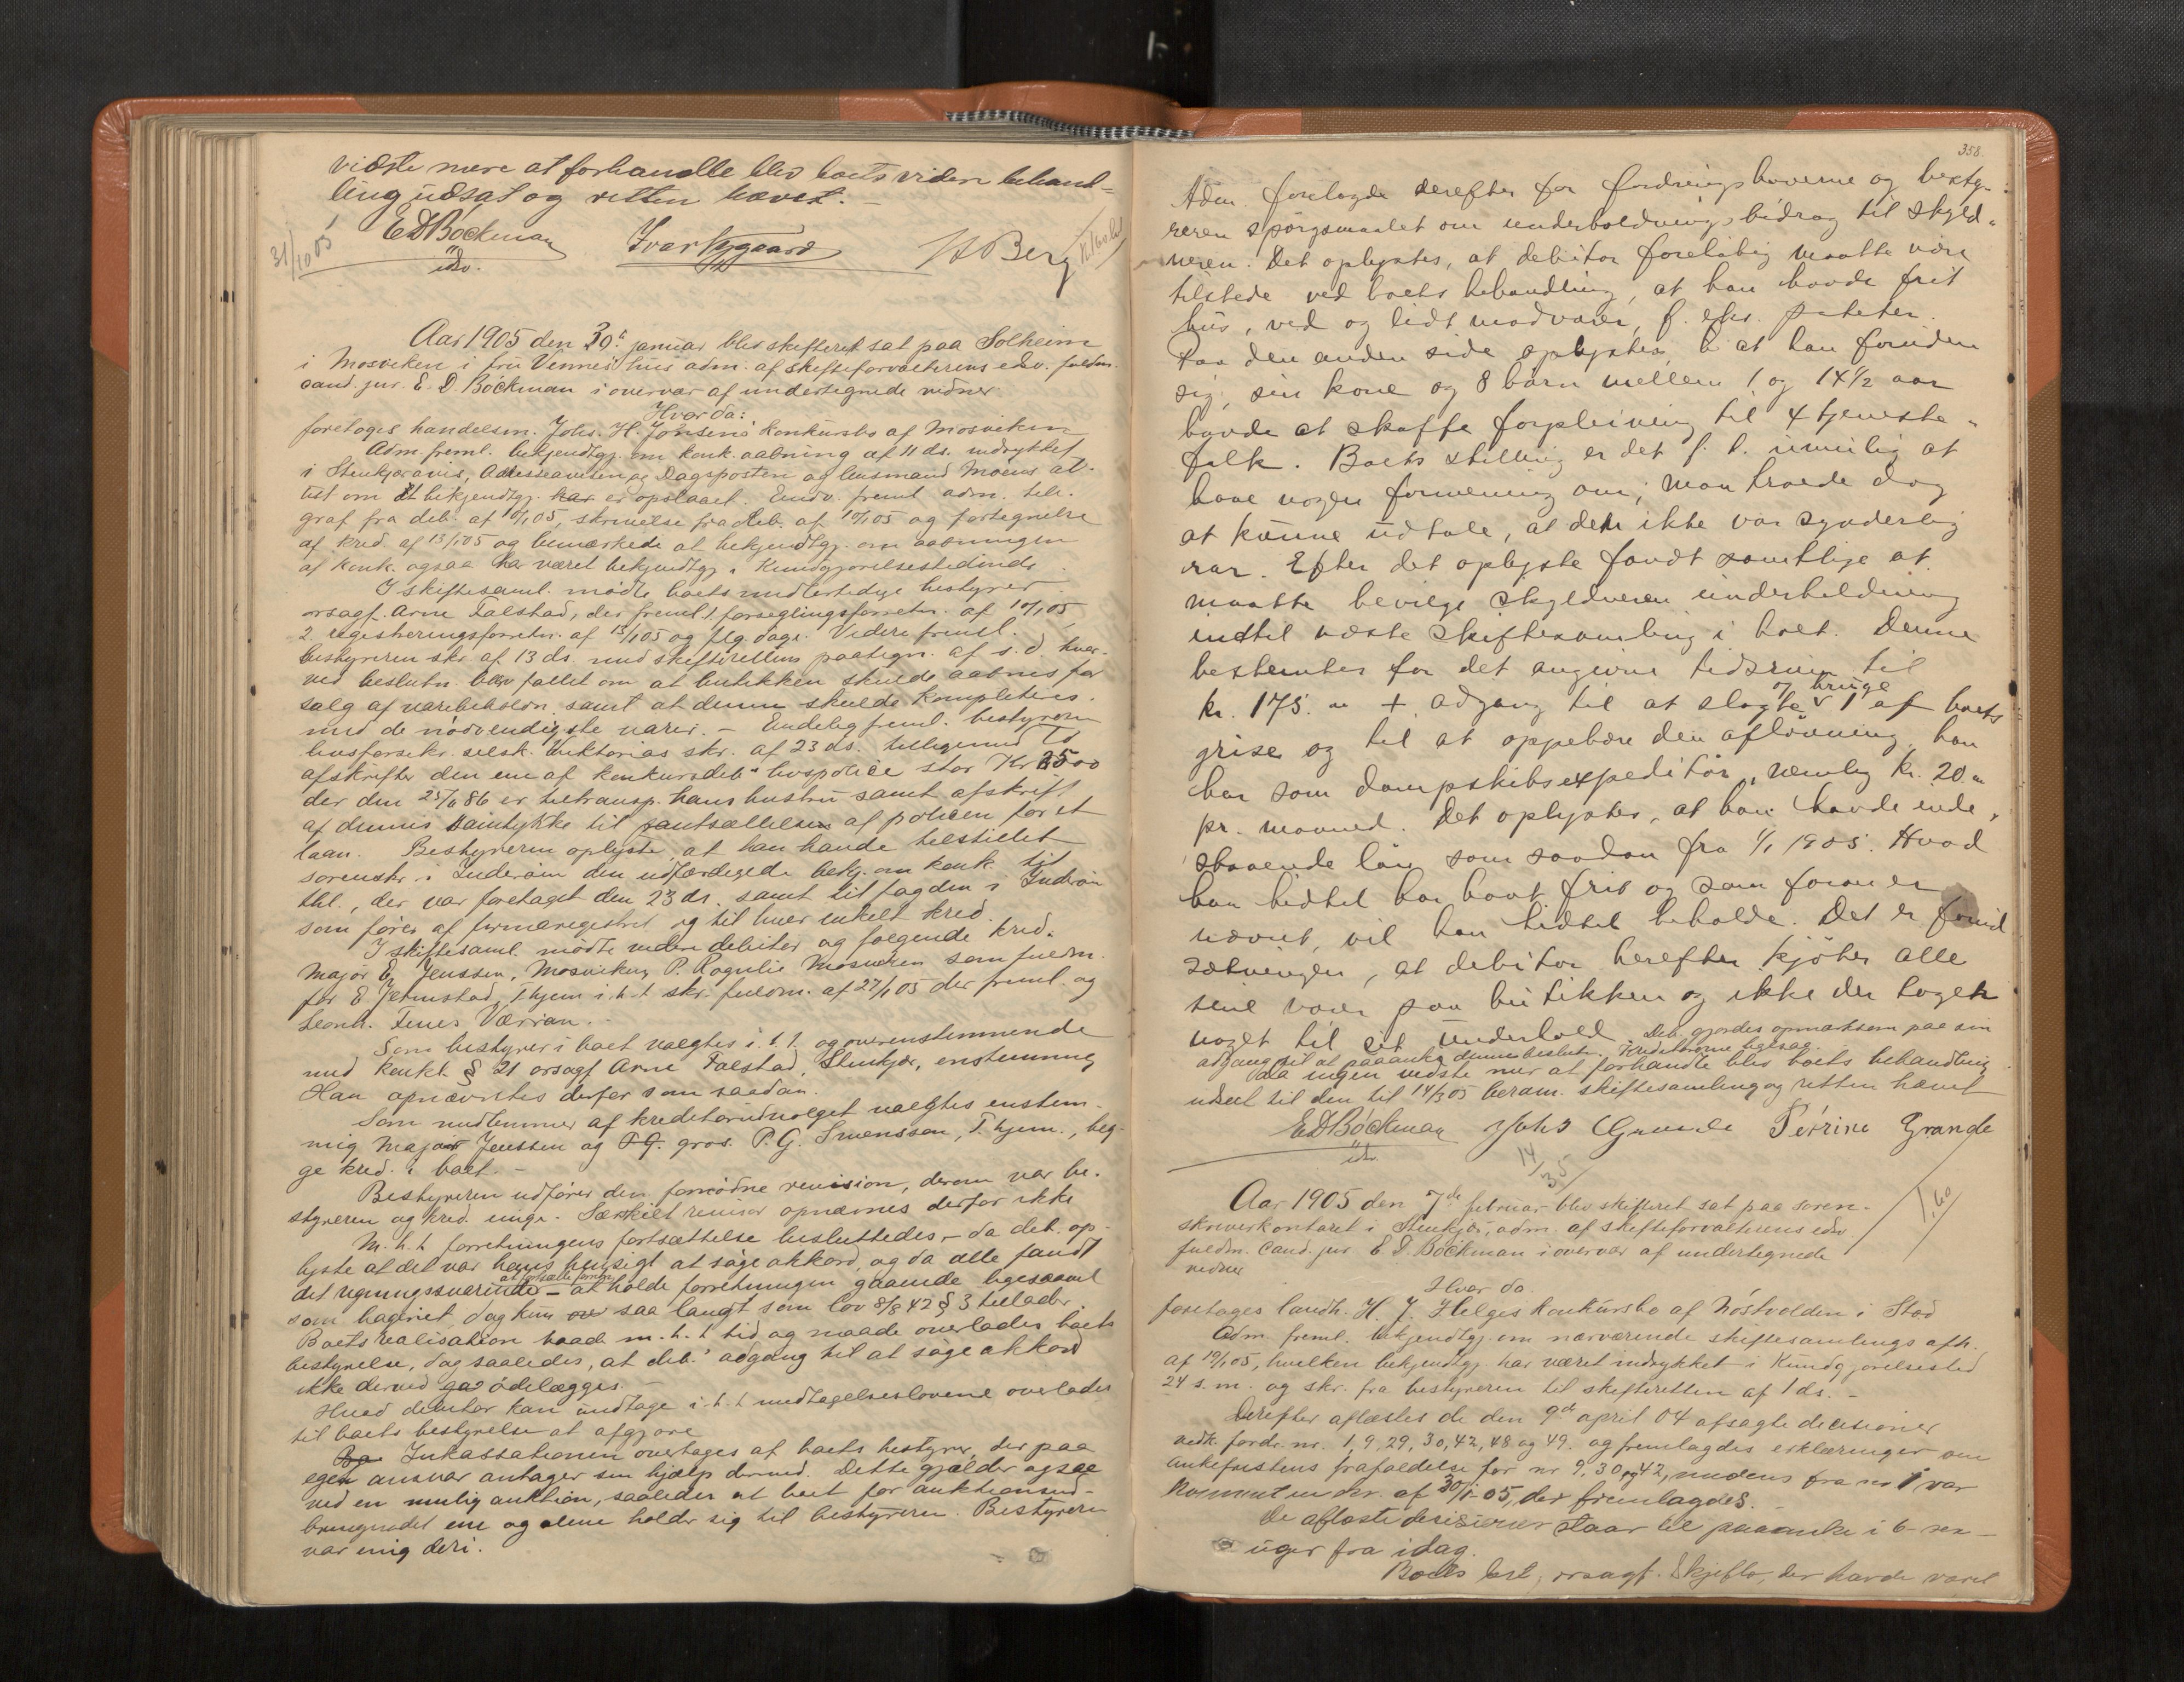 vidste mere at forhandle blev boets videre behand=
ling udsat og retten hævet. -
31/10 05 EDBöckman Ivar Nygaard H Berg
edv.
Aar 1905 den 30te januar blev skifteret sat paa Solheim
i Mosviken i fru Vennes' hus adm. af skifteforvalterens edsv. fuldm.
cand. jur. E. D. Böckman i overvær af undertegnede vidner.
Hvor da:
foretoges handelsm. Johs. H. Jönsens konkursbo af Mosviken
Adm. freml. bekjendtgj. om konk. aabning af 11 ds. indrykket
i Stenkjær avis, Adresseavisen og Dagsposten og lensmand Moens at-
test om at bekjendtgj. har er opslaaet. Endv. freml. adm. tele-
graf fra deb. af 9/1 05, skrivelse fra deb. af 10/1 05 og fortegnelse
af kred. af 13/1 05 og bemærkede at bekjendtgj. om aabningen
af konk. ogsaa har været bekjendtgj. i Kundgjörelsestidende.
I skiftesaml. mödte boets midlertidige bestyrer
orsagf. Arne Falstad, der freml. 1. forseglingsforretn. af 10/1 05
2. registreringsforretn. af 13/1 05 og flg. dage. Videre freml.
bestyreren skr. af 13 ds. med skifterettens paategn. af s. d. hvor-
ved beslutn. blev fattet om at butikken skulde aabnes for
salg af varebeholdn. samt at denne skulde kompletteres
med de nödvendigste varer. - Endelig freml. bestyreren
livsforsikr. selsk. Viktorias skr. af 23 ds. tilligemed to
afskrifter den ene af konkursdeb.s livspolice stor Kr 2500
der den 25/1 86 er tiltransp. hans hustru samt afskrift
af dennes samtykke til pantsættelsen af policen for et
laan. Bestyreren oplyste at han havde tilstillet
sorenskr. i Inderöen den udfærdigede bekj. om konk. til
thl., der var foretaget den 23 ds. samt til fogden i Inderöen
som förer af firmaregistret og til hver enkelt kred.
I skiftesaml. mödte videre debitor og fölgende kred.
Major Jenssen, Mosviken, P. Rognlie Mosviken som fuldm.
for E. Hjelmstad, Thjem i. h. t. skr. fuldm. af 27/1 05 der freml. og
Leonh. Fines Værran. -
Som bestyrer i boet valgtes i. h. t. og overensstemmende
med konkl. § 21 orsagf Arne Falstad, Stenkjær, enstemmig
Han opnævntes derfor som saadan.
Som medlemmer af kreditorudvalget valgtes enstem-
mig Major Jenssen og P. G. gros. P. G. Svensson, Thjem., beg-
ge kred. i boet. -
Bestyreren udförer den fornödne revision, derom var be-
styreren og kred. enige. Særskilt revisor opnævnes derfor ikke
M. h. t. forretningens fortsættelse besluttedes - da deb. op-
lyste at det var hans hensigt at söge akkord, og da alle fandt
det regningssvarende at fortsætte forretn. - at holde forretningen gaaende ligesaavel
som bageriet, dog kun saa langt som lov 8/8 42 § 3 tillader.
Boets realisation baade m. h. t. tid og maade overlades boets
bestyrelse, dog saaledes, at deb.' adgang til at söge akkord
ikke derved ödelægges. -
Hvad debitor kan undtage i. h. t. undtagelseslovene overlades
til boets bestyrelse at afgjöre
Inkassationen overtages af boets bestyrer, der paa
eget ansvar antager sin hjælp dermed. Dette gjælder ogsaa
ved en mulig auktion, saaledes at boet for auktionsud-
bringendet ene og alene holder sig til bestyreren. Bestyreren
var enig deri.
358.
Adm. forelagde derefter for fordringshaverne og besty-
reren spörgsmaalet om underholdningsbidrag til skyld-
neren. Det oplystes, at debitor forelöbig maatte være
tilstede ved boets behandling, at han havde frit
hus, ved og lidt madvarer, f. eks. poteter.
Paa den anden side oplystes, at han foruden
sig, sin kone og 8 barn mellem 1 og 14 1/2 aar
havde at skaffe forpleining til 4 tjeneste-
folk. Boets stilling er det f. t. umulig at
have nogen formening om; man troede dog
at kunne udtale, at den ikke var synderlig
rar. Efter det oplyste fandt samtlige at
maatte bevilge skyldneren underholdning
indtil næste skiftesamling i boet. Denne
bestemtes for det angivne tidsrum til
kr. 175.00 + adgang til at slagte og bruge 1 af boets
grise og til at oppebære den aflönning, han
har som dampskibsexpeditör, nemlig kr. 20.00
pr. maaned. Det oplystes, at han havde inde-
staaende lön som saadan fra 1/1 1905. Hvad
han hidtil har havt frit og som foran er
nævnt, vil han hidtil beholde. Det er forud-
sætningen, at debitor herefter kjöber alle
sine varer paa butikken og ikke der tager
noget til sit underhold. Deb. gjordes opmærksom paa sin
adgang til at paaanke denne beslutn. Kreditorerne ligesaa.
Da ingen vidste mer at forhandle blev boets behandling
udsat til den til 14/3 05 beram. skiftesamling og retten hævet
EDBöckman Johs Grande Petrine Grande
edv.
14/3 5
Aar 1905 den 7de februar blev skifteret sat paa soren-
skriverkontoret i Stenkjær, adm. af skifteforvalterens edsv.
fuldm. Cand. jur. E. D. Böckman i overvær af undertegnede
vidner
1,60
Hvor da.
foretoges landh. H. J. Helges konkursbo af Nöstvolden i Stod
Adm. freml. bekjendtgj. om nærværende skiftesamlings afh.
af 19/1 05, hvilken bekjendtgj. har været indrykket i Kundgjörelsestid
24 s. m. og skr. fra bestyreren til skifteretten af 1 ds. -
Derefter aflæstes de den 9de april 04 afsagte decisioner
vedk. fordr. nr. 1, 9, 29, 30, 42, 48 og 49. og fremlagdes erklæringer om
ankefristens frafaldelse for nr 9, 30 og 42, medens fra nr 1 var
kommet en skr. af 30/1-05, der fremlagdes. -
De aflæste decisioner staar til paaanke i 6 sex
uger fra idag.
Boets best, orsagf. Skjeflo, der havde været